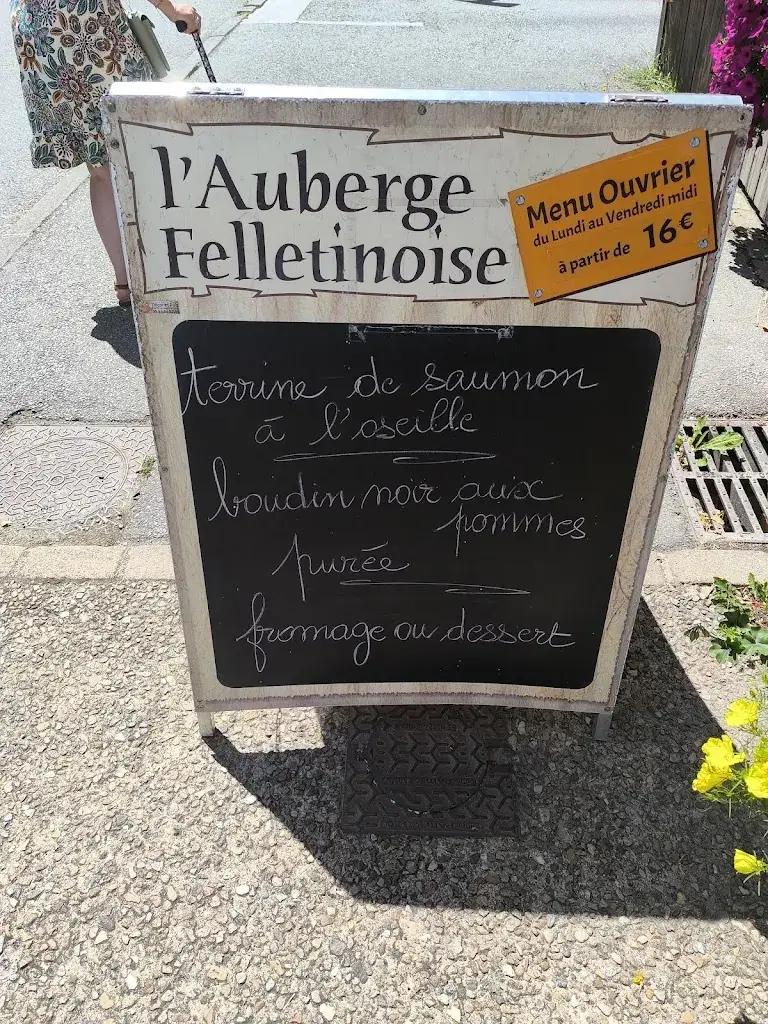 l'Auberge
Felletinoise
Menu Ouvrier
du Lundi au Vendredi midi
à partir de 16€
terrine de saumon
à l'oseille
boudin noir aux
pommes
purée
fromage ou dessert